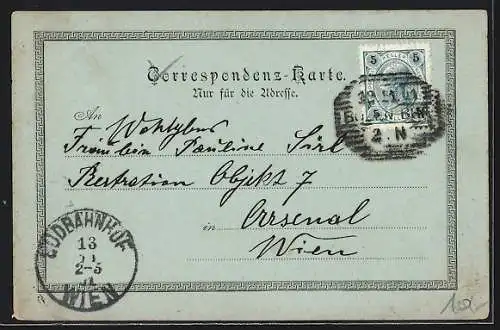 5 HELLER 5
Correspondenz-Karte.
Nur für die Adresse.
An Wohlgeb
Fräulein Pauline Sirl
Restration Objekt 7
in Arsenal
Wien
SÜDBAHNHOF
13
2-5
WIEN